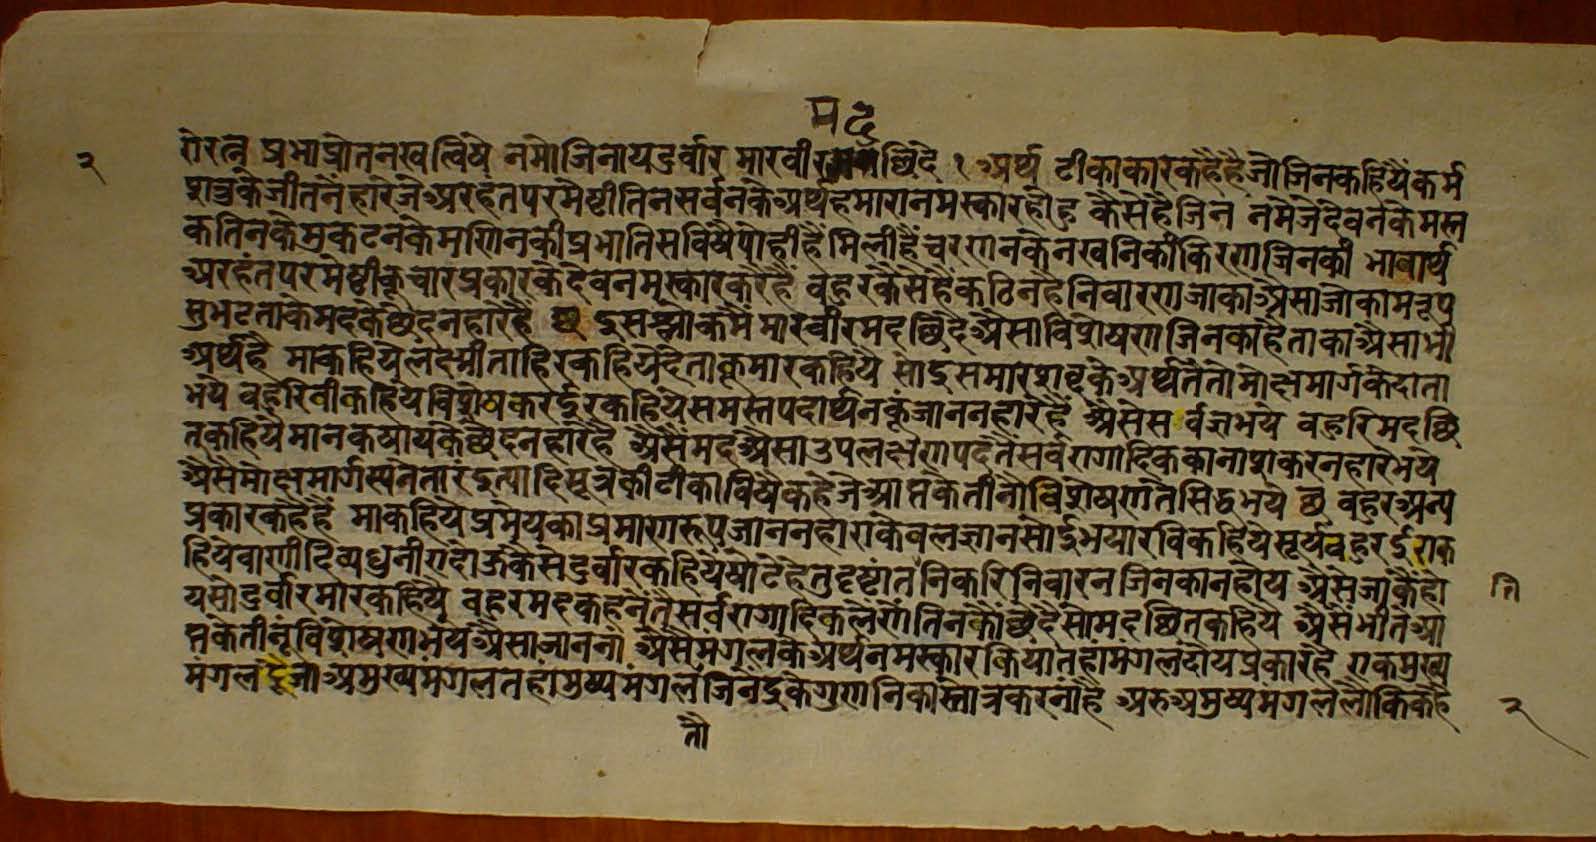 मद
२
रोरत्न प्रभाप्रोतनखत्विषे नमोजिनायदुर्वार मारवीर छिदे १ अर्थ टीकाकारकहैहै जोजिनकहियैकर्म
शत्रुकेजीतनहारजेअरहंतपरमेष्टीतिनसर्वनकेअर्थहमारानमस्कारहोहु कैसेहैजिन नमेजेदेवनकेमस्त
कतिनकेमुकटनकेमणिनकीप्रभातिसविषैपोहीहैंमिलीहैंचरणनकेनखनिकीकिरणजिनकी भावार्थ
अरहंतपरमेष्टीकूचारप्रकारकेदेवनमस्कारकरैहैं बहुरकैसेहैंकठिनहैनिवारणजाकाअसाजोकामनृप
सुभटताकेमदकेछेदनहारहै छ इसश्लोकमैंमारवीरमदछिदेअैसाविशेषणजिनकाहैताकाअैसाभी
अर्थहै माकहियेलक्ष्मीताहिरकहियेदेताकूमारकहिये सोइसमारशब्दकेअर्थतैतोमोक्षमार्गकेदाता
भये बहुरिवीकहियेविशेषकरईरकहियेसमस्तपदार्थनकूजाननहारहैं अैसेसर्वज्ञभये बहुरिमदछि
तकहियेमानकषायकेछेदनहारहै अैसैमदअैसाउपलक्षणपदतैसर्वरागादिककानाशकरनहारभये
अैसेमोक्षमार्गस्यनेतारइत्यादिसूत्रकीटीकाविषैकहेजेआप्तकेतीनोविशेषणतेसिद्धभये छ बहुरअन्य
प्रकारकहैहैं माकहियेप्रमेयकाप्रमाणरूपजाननहाराकेवलज्ञानसोईभयारविकहियेसूर्यबहुरईराक
हियेवाणीदिव्यध्वनीएदोऊकैसेदुर्वारकहियेषोटेहेतुदृष्टांतनिकरिनिवारनजिनकानहोय अैसेजाकैहो
यसोदुर्वारमारकहिये बहुरमदकहनेतैसर्वरागादिकलेणेतिनकौछेदैसोमदछितकहिये अैसेंभीतेआ
प्तकेतीनूंविशेषणभयेअैसाजानना अैसेमंगलकेअर्थनमस्कारकियातहांमंगलदोयप्रकारहै एकमुख्य
मंगल दूजाअमुख्यमंगलतहांमुष्यमंगलजिनेंद्रकेगुणनिकास्तोत्रकरनाहै अरुअमुष्यमंगललौकिकहै
नि
२
तौ